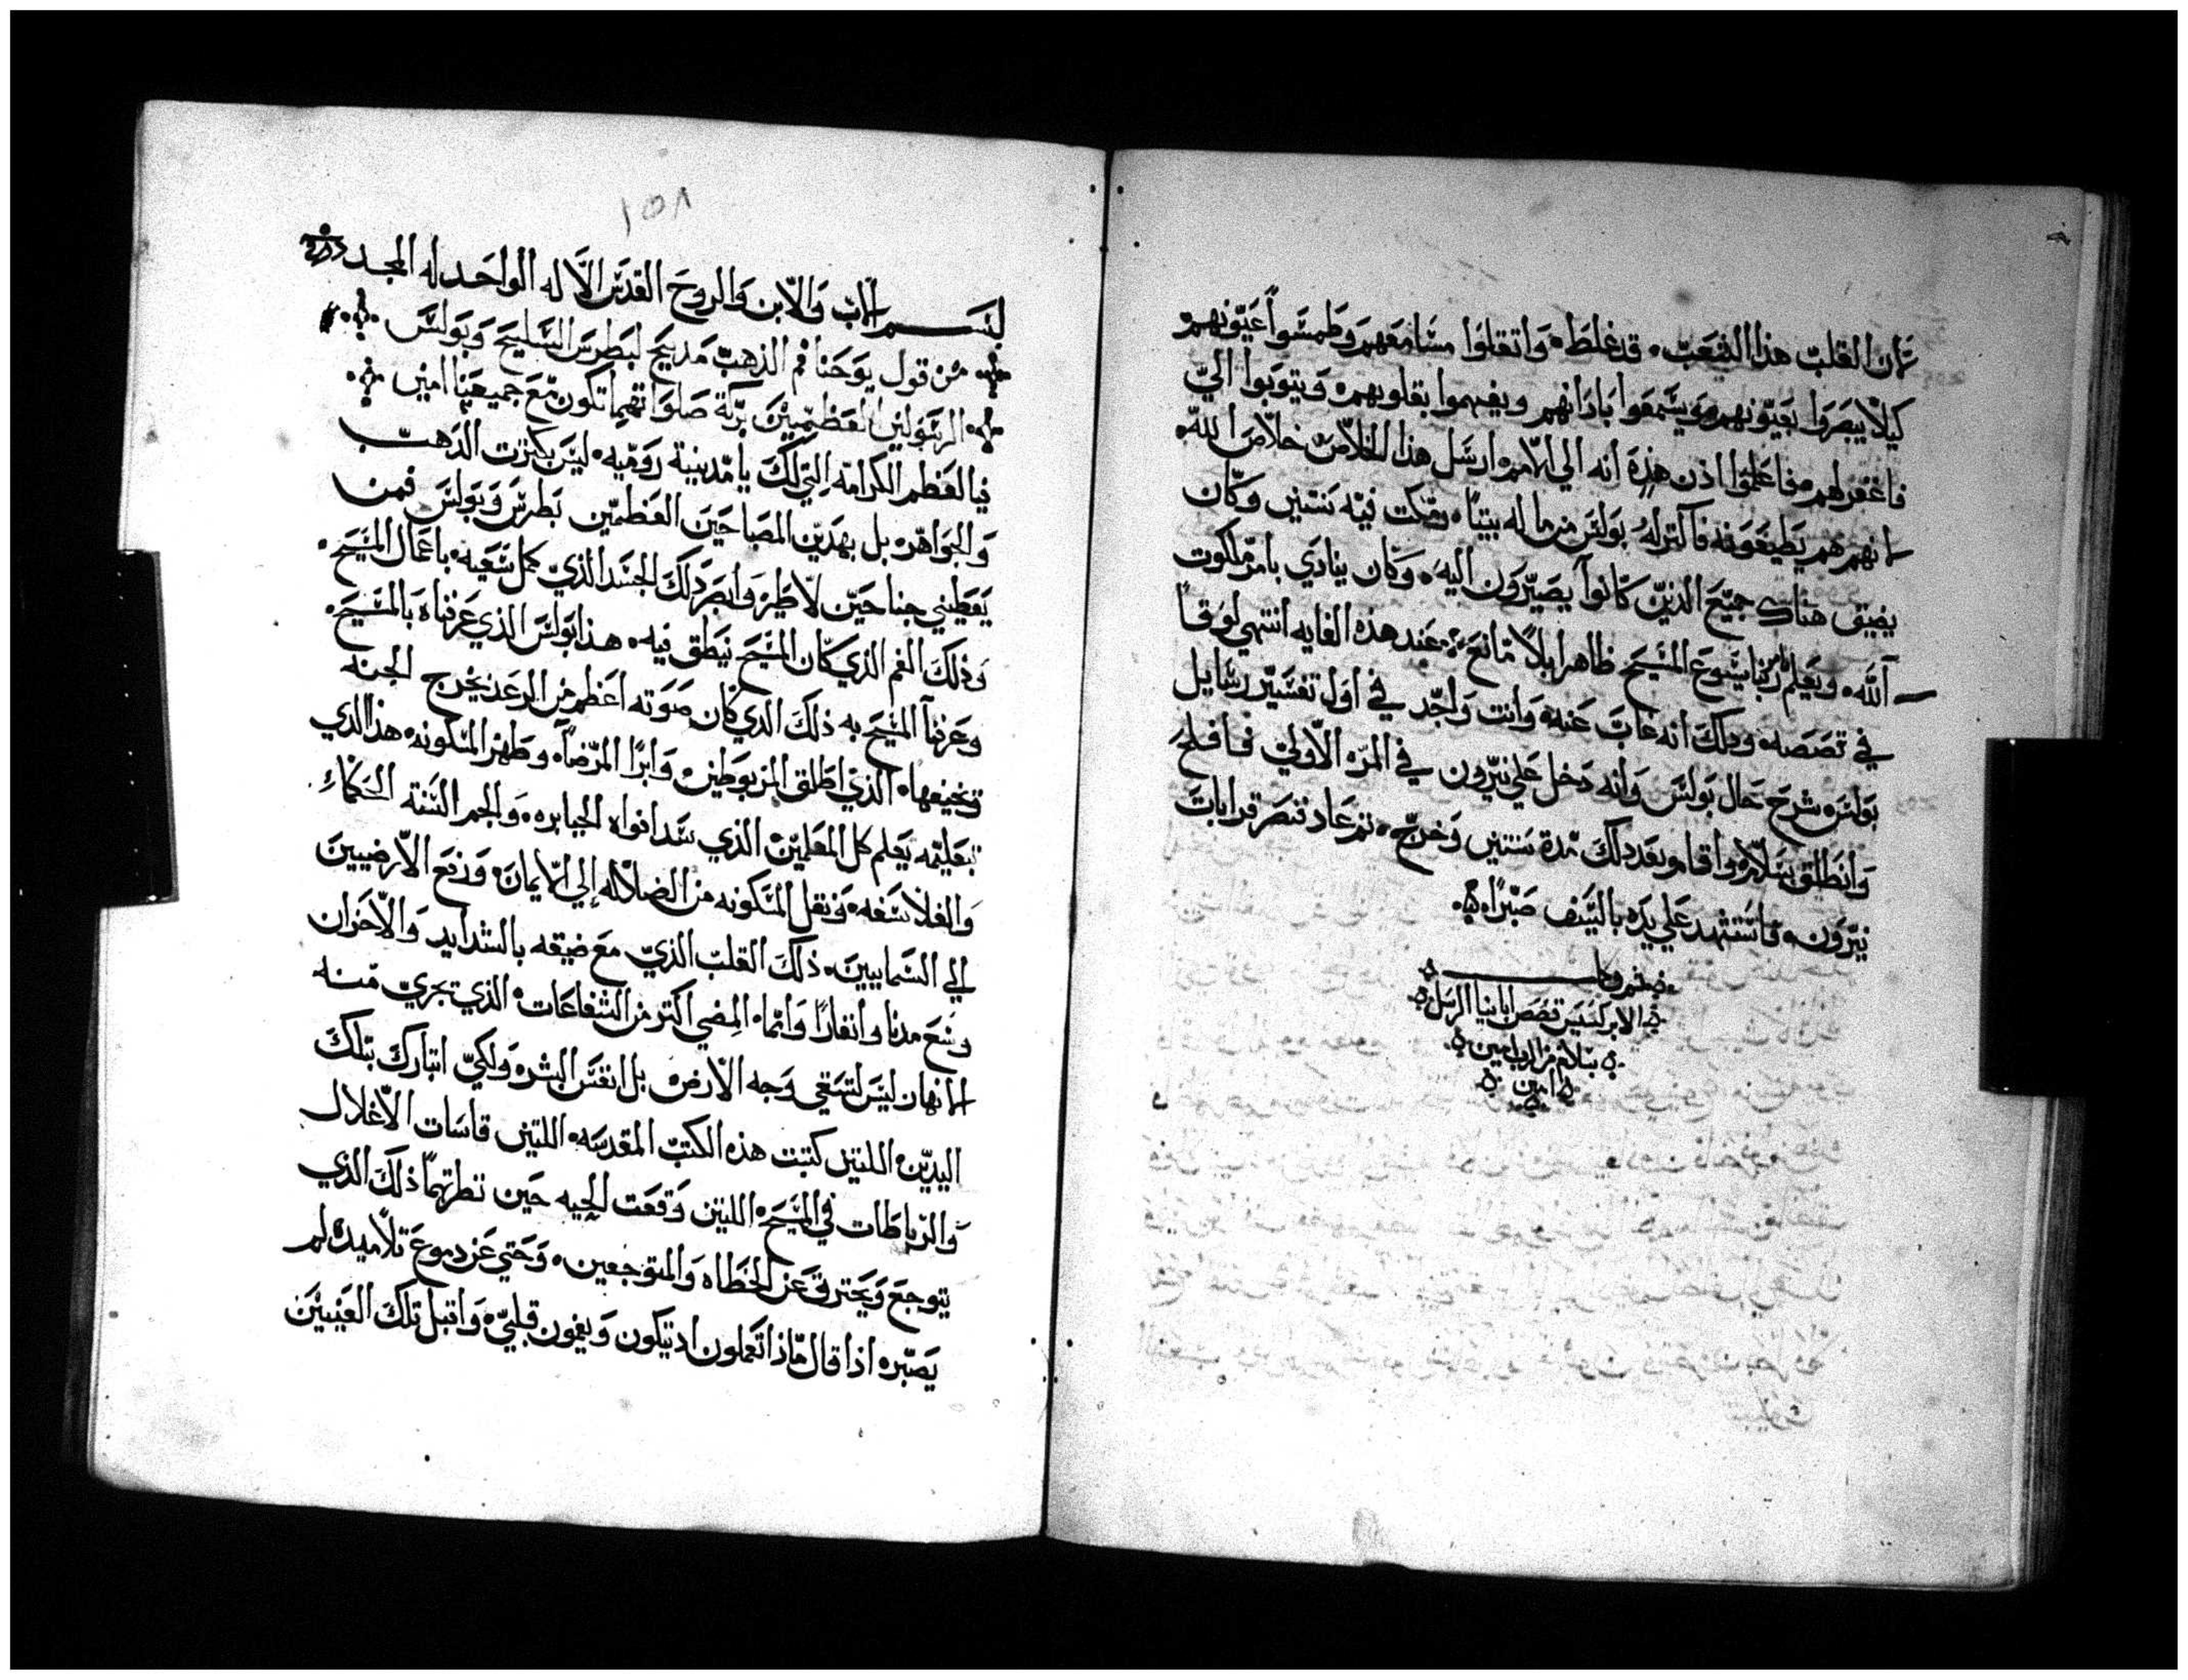 لان القلب هذا الشعب قد غلظ وانتقلوا مسامعهم وطمسوا عيونهم
كيلا يبصروا بعيونهم ويسمعوا باذانهم ويفهموا بقلوبهم ويتوبوا الي
فاغفر لهم فاعلموا اذن هذه انه الي الامم ارسل هذا الخلاص خلاص الله
انهم هم يطيعونه فاكترا له بولس من ماله بيتا ومكت فيه سنتين وكان
يضيق هناك جميع الذين كانوا يصيرون اليه وكان ينادي بامر ملكوت
الله ويعلم بامر ربنا يسوع المسيح ظاهرا بلا مانع عند هذه الغايه انتهي لوقا
في قصصه ودلك انه غاب عنه وانت واجد في اول تفسير رسايل
بولس شرح حال بولس وانه دخل علي نيرون في المره الاولي فافلح
وانطلق بسلام واقام بعد دلك مدة سنتين وخرج ثم عاد تنصر قرابات
نيرون فاستشهد علي يده بالسيف صبرا
تم وكمل
الابركسيس قصص ابانيا الرسل
بسلام من الرب امين
امين
١٥٨
بسم الاب والابن والروح القدس الاله الواحد له المجد
من قول يوحنا فم الذهب مديح لبطرس السليح وبولس
الرسولين العظيمين بركة صلواتهما تكون مع جميعنا امين
فيا لعظم الكرامه التي لك يا مدينة روميه ليس بكترت الدهب
والجواهر بل بهدين المصباحين العظمين بطرس وبولس فمن
يعطيني جناحين لاطير وابصر دلك الجسد الذي كمل سعيه باعمال المسيح
وذلك الفم الذي كان المسيح نيطق فيه هذا بولس الذي عرفناه بالمسيح
وعرفنا المسيح به ذلك الدي كان صوته اعظم من الرعد يخرج الجنه
وتخيفها الذي اطلق المربوطين وابرا المرضا وطهر المسكونه هذا الدي
بتعليمه يعلم كل المعلمين الذي سد افواه الجبابره والجم السنة الحكماء
والفلاسفه ونقل المسكونه من الضلاله إلي الايمان ورفع الارضيين
الي السمايين ذلك القلب الذي مع ضيقه بالشدايد والاحزان
وسع مدنا وانفارا وانما المضي اكتر من الشفاعات الذي تجري منه
الانهار ليس لتسقي وجه الارض بل انفس البشر ولكي اتبارك بتلك
اليدين اللتين كتبت هذه الكتب المقدسه اللتين قاسات الاغلال
والرباطات في المسيح اللتين وقعت الحيه حين نطرتهما ذلك الذي
يتوجع ويحترق عن الخطاه والمتوجعين وحتي عن دموع تلاميده لم
يصبره اذا قال ماذا تعملون اد تبكون وتغمون قلبي واقبل تلك العينين